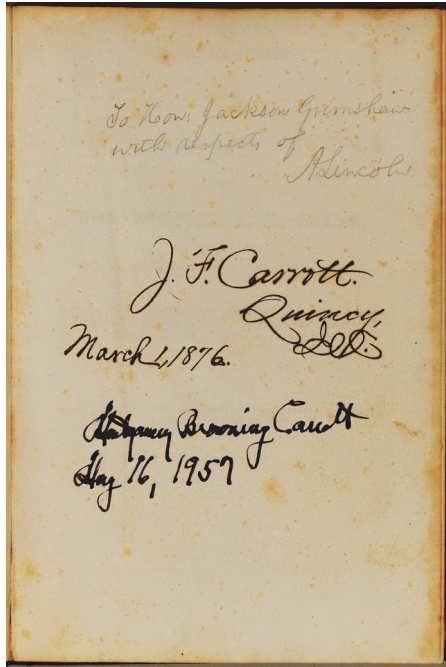 To Hon: Jackson Grimshaw
with respects of
A Lincoln
J. F. Carrott.
Quincy,
Ills.
March 1, 1876.
Montgomery Browning Carrott
May 16, 1957